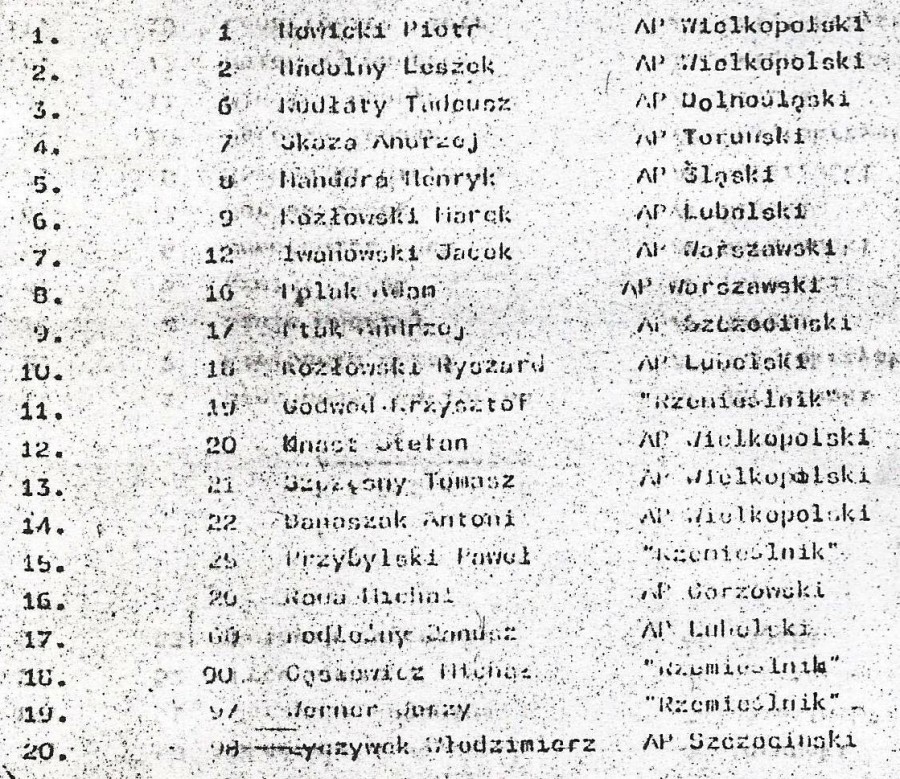 1. 1 Nowicki Piotr AP Wielkopolski
2. 2 Nadolny Leszek AP Wielkopolski
3. 6 Kudłaty Tadeusz AP Dolnośląski
4. 7 Skoza Andrzej AP Toruński
5. 8 Mandera Henryk AP Śląski
6. 9 Kozłowski Marek AP Lubelski
7. 12 Iwanowski Jacek AP Warszawski
8. 16 Polak Adam AP Warszawski
9. 17 Ptak Andrzej AP Szczeciński
10. 18 Kozłowski Ryszard AP Lubelski
11. 19 Godwod Krzysztof "Rzemieślnik"
12. 20 Knast Stefan AP Wielkopolski
13. 21 Szczęsny Tomasz AP Wielkopolski
14. 22 Banaszak Antoni AP Wielkopolski
15. 25 Przybylski Paweł "Rzemieślnik"
16. 26 Michał AP Gorzowski
17. Podleśny Janusz AP Lubelski
18. 90 Gąsiewicz Michał "Rzemieślnik"
19. 97 Werner Jerzy "Rzemieślnik"
20. 98 Łyczywek Włodzimierz AP Szczeciński